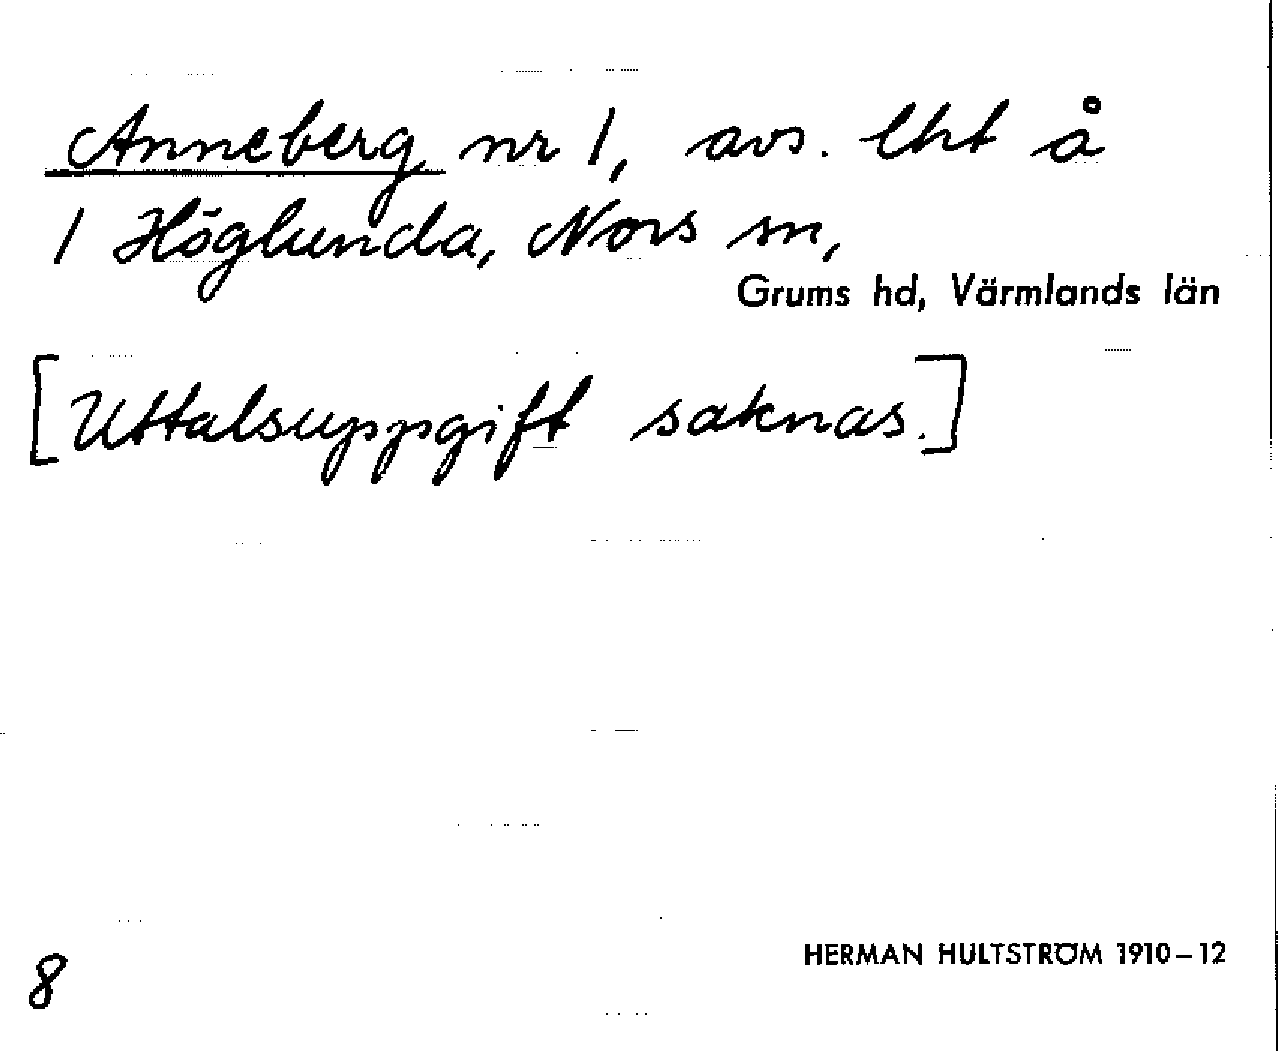 Anneberg nr 1, avs. lht å
1 Höglunda, Nors sn,
Grums hd, Värmlands län
[Uttalsuppgift saknas.]
HERMAN HULTSTRÖM 1910–12
8